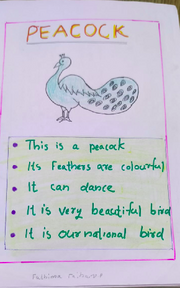 PEACOCK
This is a peacock
Its Feathers are colourful
It can dance
It is very beautiful bird
It is our national bird